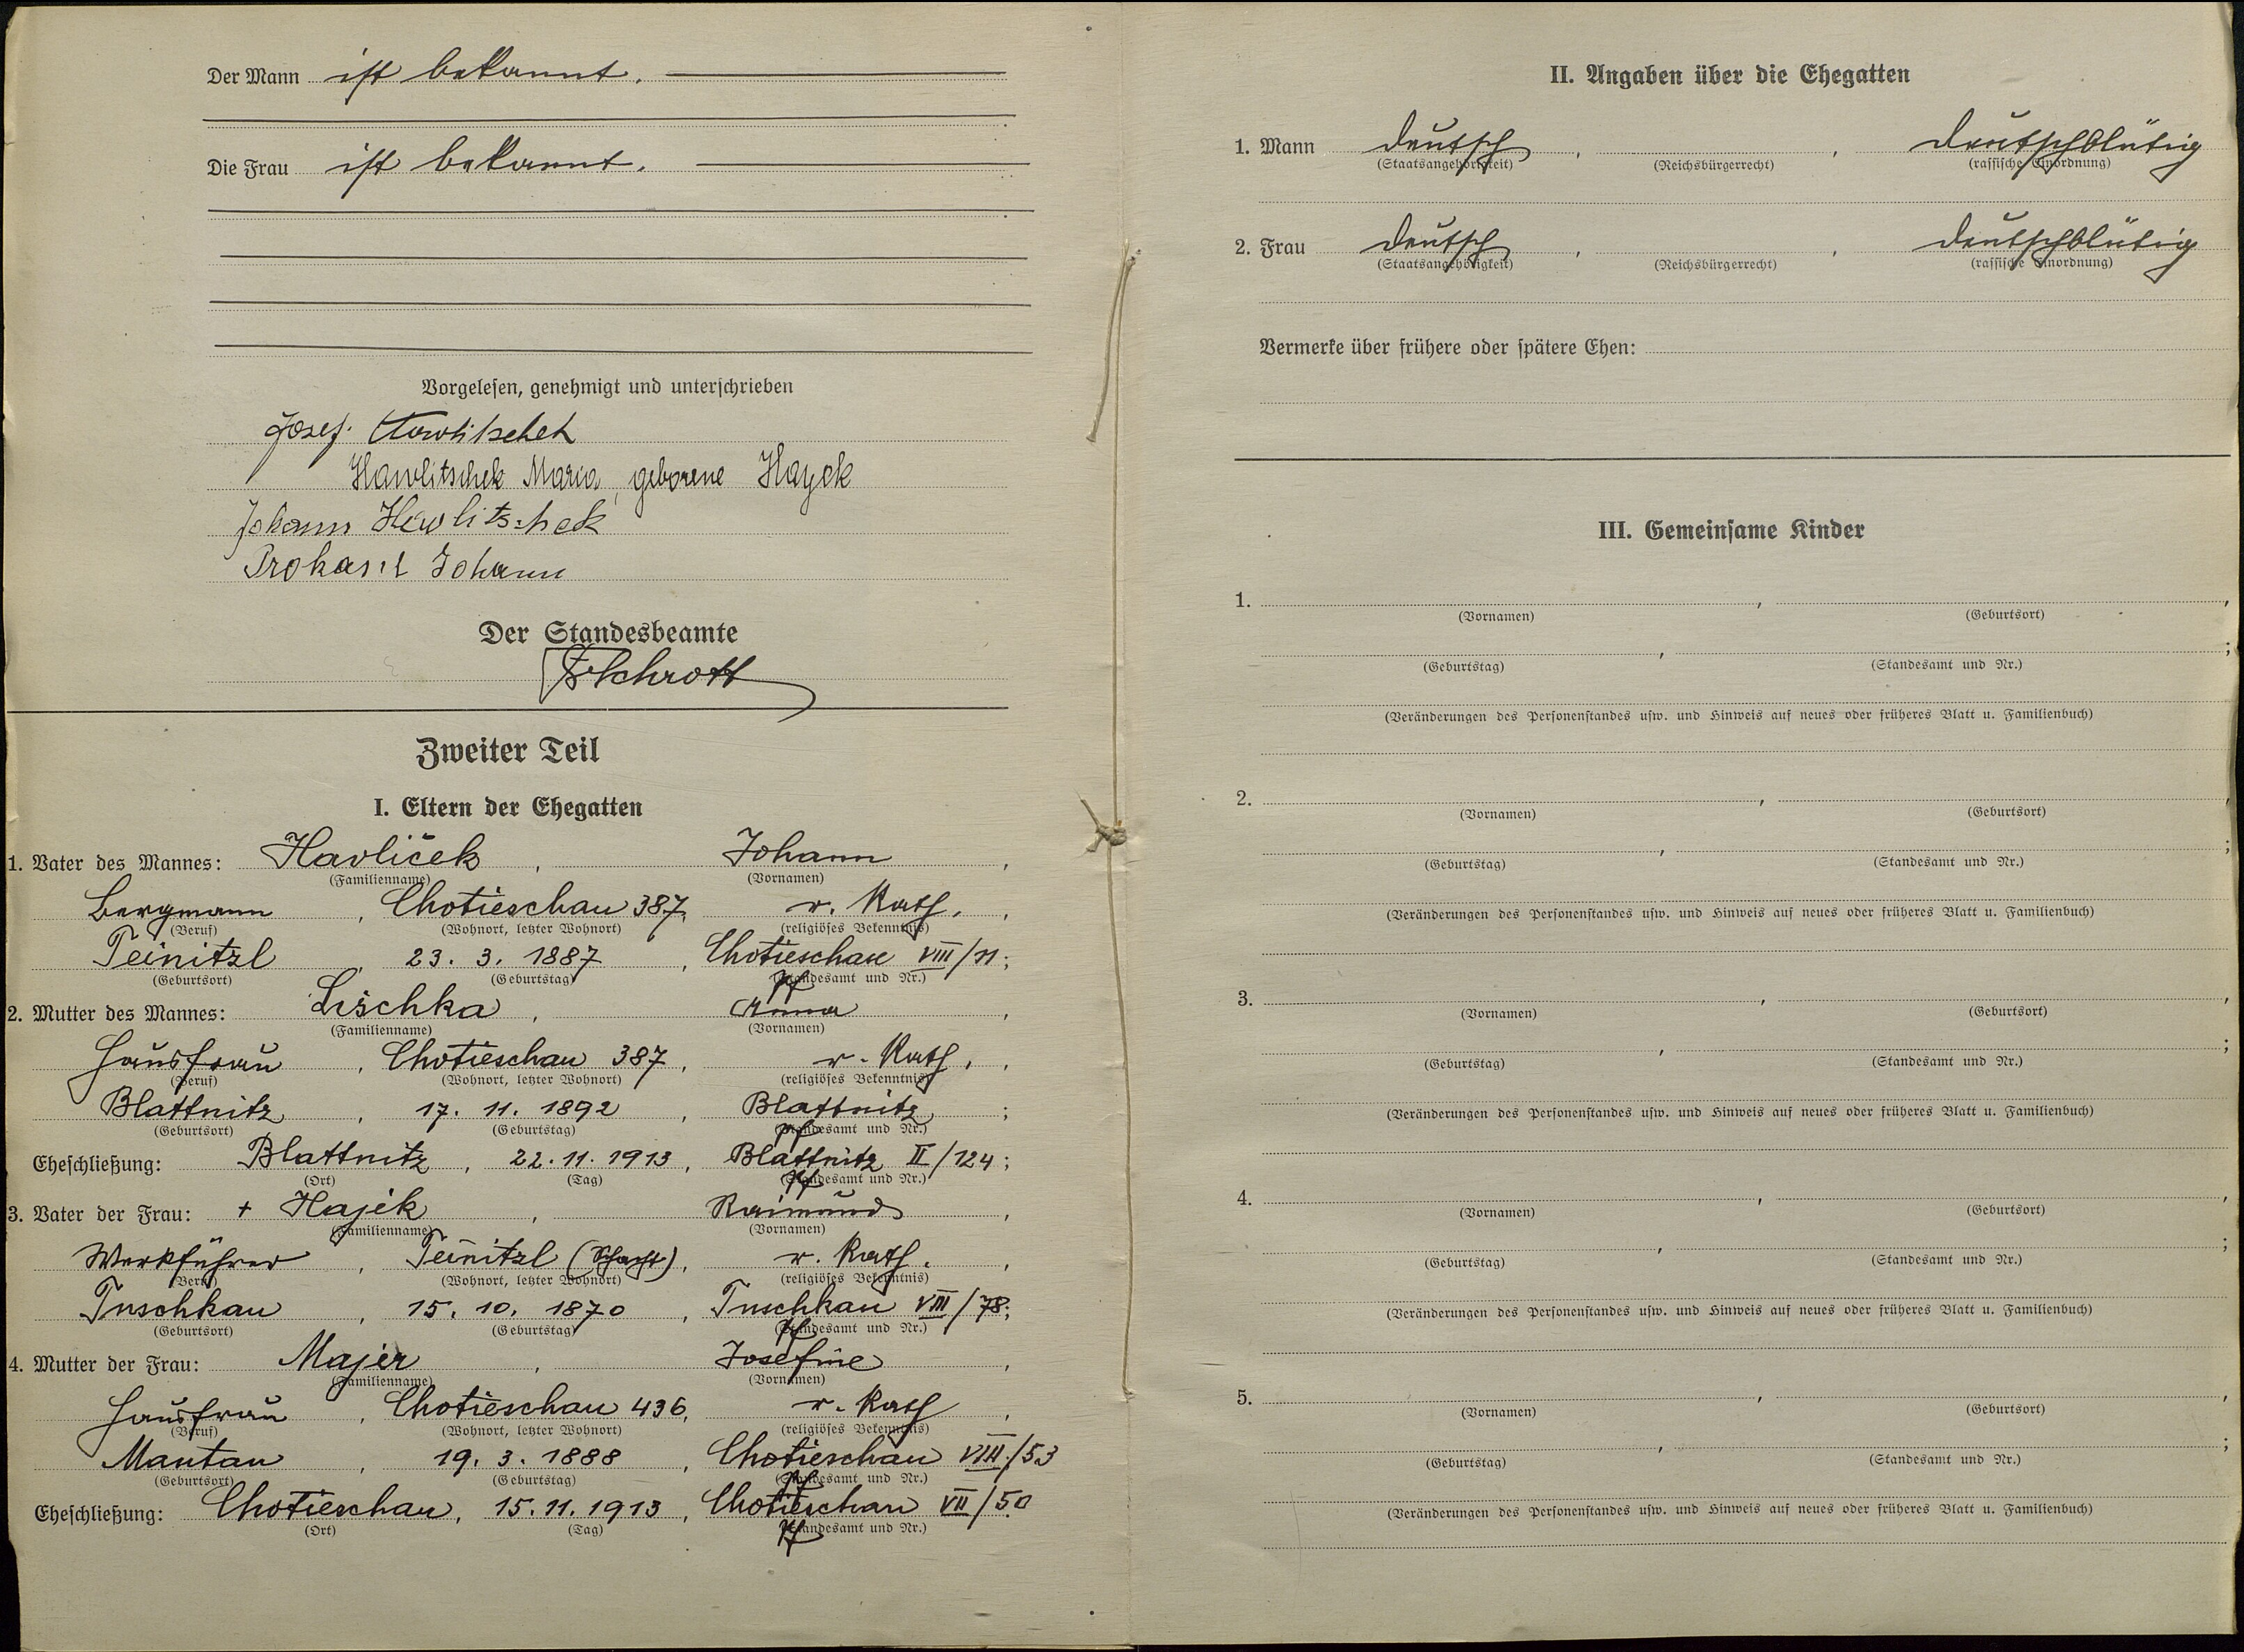 Der Mann ist bekannt.
Die Frau ist bekannt.
Vorgelesen, genehmigt und unterschrieben
Josef Hawlitschek
Hawlitschek Maria, geborene Hayek
Johann Hawlitschek
Johann
Der Standesbeamte
Schrott
Zweiter Teil
I. Eltern der Ehegatten
1. Vater des Mannes: Havliček, Johann,
(Familienname) (Vornamen)
Bergmann, Chotieschau 387, r. kath.,
(Beruf) (Wohnort, letzter Wohnort) (religiöses Bekenntnis)
Teinitzl, 23. 3. 1887, Chotieschau VIII/11;
(Geburtsort) (Geburtstag) (Standesamt und Nr.)
2. Mutter des Mannes: Lischka, Anna,
(Familienname) (Vornamen)
Hausfrau, Chotieschau 387, r. kath.,
(Beruf) (Wohnort, letzter Wohnort) (religiöses Bekenntnis)
Blattnitz, 17. 11. 1892, Blattnitz;
(Geburtsort) (Geburtstag) (Standesamt und Nr.)
Eheschließung: Blattnitz, 22. 11. 1913, Blattnitz II/124;
(Ort) (Tag) (Standesamt und Nr.)
3. Vater der Frau: + Hajek, Raimund,
(Familienname) (Vornamen)
Werkführer, Teinitzl (Schacht), r. kath.,
(Beruf) (Wohnort, letzter Wohnort) (religiöses Bekenntnis)
Tuschkau, 15. 10. 1870, Tuschkau VIII/78;
(Geburtsort) (Geburtstag) (Standesamt und Nr.)
4. Mutter der Frau: Majer, Josefine,
(Familienname) (Vornamen)
Hausfrau, Chotieschau 436, r. kath,
(Beruf) (Wohnort, letzter Wohnort) (religiöses Bekenntnis)
Mantau, 19. 3. 1888, Chotieschau VIII/53
(Geburtsort) (Geburtstag) (Standesamt und Nr.)
Eheschließung: Chotieschau, 15. 11. 1913, Chotieschau VII/50
(Ort) (Tag) (Standesamt und Nr.)
II. Angaben über die Ehegatten
1. Mann deutsch, , deutschblütig
(Staatsangehörigkeit) (Reichsbürgerrecht) (rassische Einordnung)
2. Frau deutsch, , deutschblütig
(Staatsangehörigkeit) (Reichsbürgerrecht) (rassische Einordnung)
Vermerke über frühere oder spätere Ehen:
III. Gemeinsame Kinder
1. , ,
(Vornamen) (Geburtsort)
, ;
(Geburtstag) (Standesamt und Nr.)
(Veränderungen des Personenstandes usw. und Hinweis auf neues oder früheres Blatt u. Familienbuch)
2. , ,
(Vornamen) (Geburtsort)
, ;
(Geburtstag) (Standesamt und Nr.)
(Veränderungen des Personenstandes usw. und Hinweis auf neues oder früheres Blatt u. Familienbuch)
3. , ,
(Vornamen) (Geburtsort)
, ;
(Geburtstag) (Standesamt und Nr.)
(Veränderungen des Personenstandes usw. und Hinweis auf neues oder früheres Blatt u. Familienbuch)
4. , ,
(Vornamen) (Geburtsort)
, ;
(Geburtstag) (Standesamt und Nr.)
(Veränderungen des Personenstandes usw. und Hinweis auf neues oder früheres Blatt u. Familienbuch)
5. , ,
(Vornamen) (Geburtsort)
, ;
(Geburtstag) (Standesamt und Nr.)
(Veränderungen des Personenstandes usw. und Hinweis auf neues oder früheres Blatt u. Familienbuch)